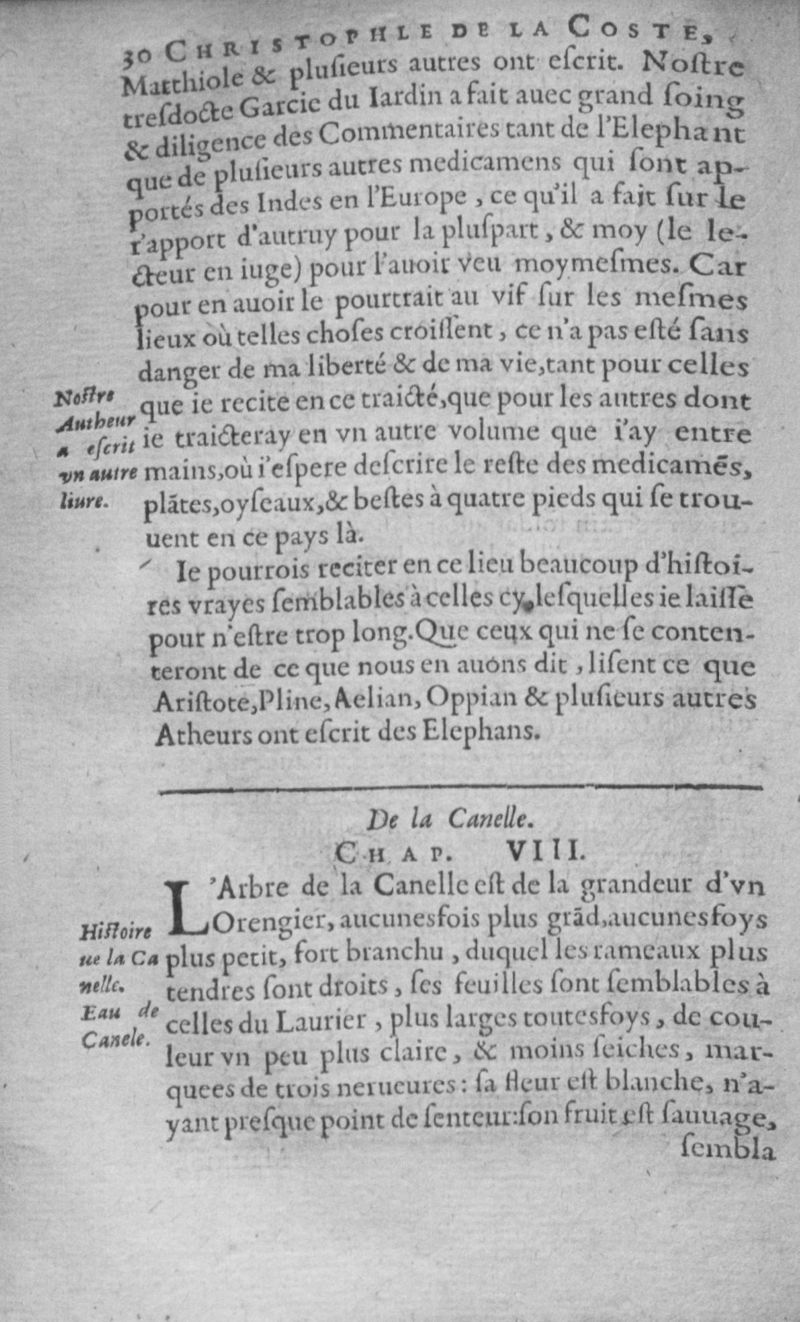 30 CHRISTOPHLE DE LA COSTE,
Matthiole & pluſieurs autres ont eſcrit. Noſtre
treſdocte Garcie du Iardin a fait auec grand ſoing
& diligence des Commentaires tant de l'Elephant
que de pluſieurs autres medicamens qui ſont ap-
portés des Indes en l'Europe , ce qu'il a fait ſur le
rapport d'autruy pour la pluſpart , & moy (le le-
cteur en iuge) pour l'auoir veu moymeſmes. Car
pour en auoir le pourtrait au vif ſur les meſmes
lieux où telles choſes croiſſent , ce n'a pas eſté ſans
danger de ma liberté & de ma vie,tant pour celles
que ie recite en ce traicté,que pour les autres dont
ie traicteray en vn autre volume que i'ay entre
mains,où i'eſpere deſcrire le reſte des medicamẽs,
plãtes,oyſeaux,& beſtes à quatre pieds qui ſe trou-
uent en ce pays là.
Noſtre
Autheur
a eſcrit
vn autre
liure.
Ie pourrois reciter en ce lieu beaucoup d'hiſtoi-
res vrayes ſemblables à celles cy,leſquelles ie laiſſe
pour n'eſtre trop long.Que ceux qui ne ſe conten-
teront de ce que nous en auons dit , liſent ce que
Ariſtote,Pline, Aelian, Oppian & pluſieurs autres
Atheurs ont eſcrit des Elephans.
De la Canelle.
CHAP. VIII.
L'Arbre de la Canelle eſt de la grandeur d'vn
Orengier, aucunesfois plus grãd,aucunesfoys
plus petit, fort branchu , duquel les rameaux plus
tendres ſont droits , ſes feuilles ſont ſemblables à
celles du Laurier , plus larges toutesfoys , de cou-
leur vn peu plus claire, & moins ſeiches, mar-
quees de trois nerueures : ſa fleur eſt blanche, n'a-
yant preſque point de ſenteur:ſon fruit eſt ſauuage,
Hiſtoire
ue la Ca
nelle.
Eau de
Canele.
ſembla